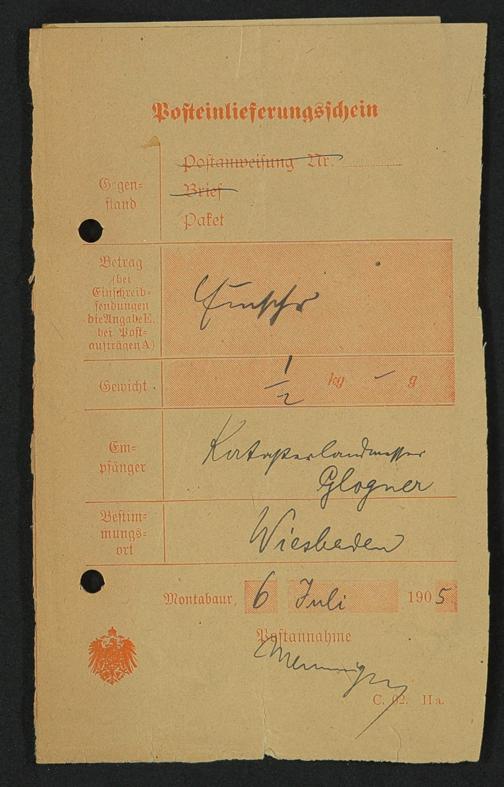 Posteinlieferungsschein
Postanweisung Nr.
Gegen-
stand
Brief
Paket
Betrag
(bei
Einschreib-
sendungen
die Angabe E.
bei Post-
aufträgen A)
Einschr
Gewicht
1/2 kg – g
Em-
pfänger
Katasterlandmesser
Glogner
Bestim-
mungs-
ort
Wiesbaden
Montabaur, 6 Juli 1905
Postannahme
C. 62. IIa.